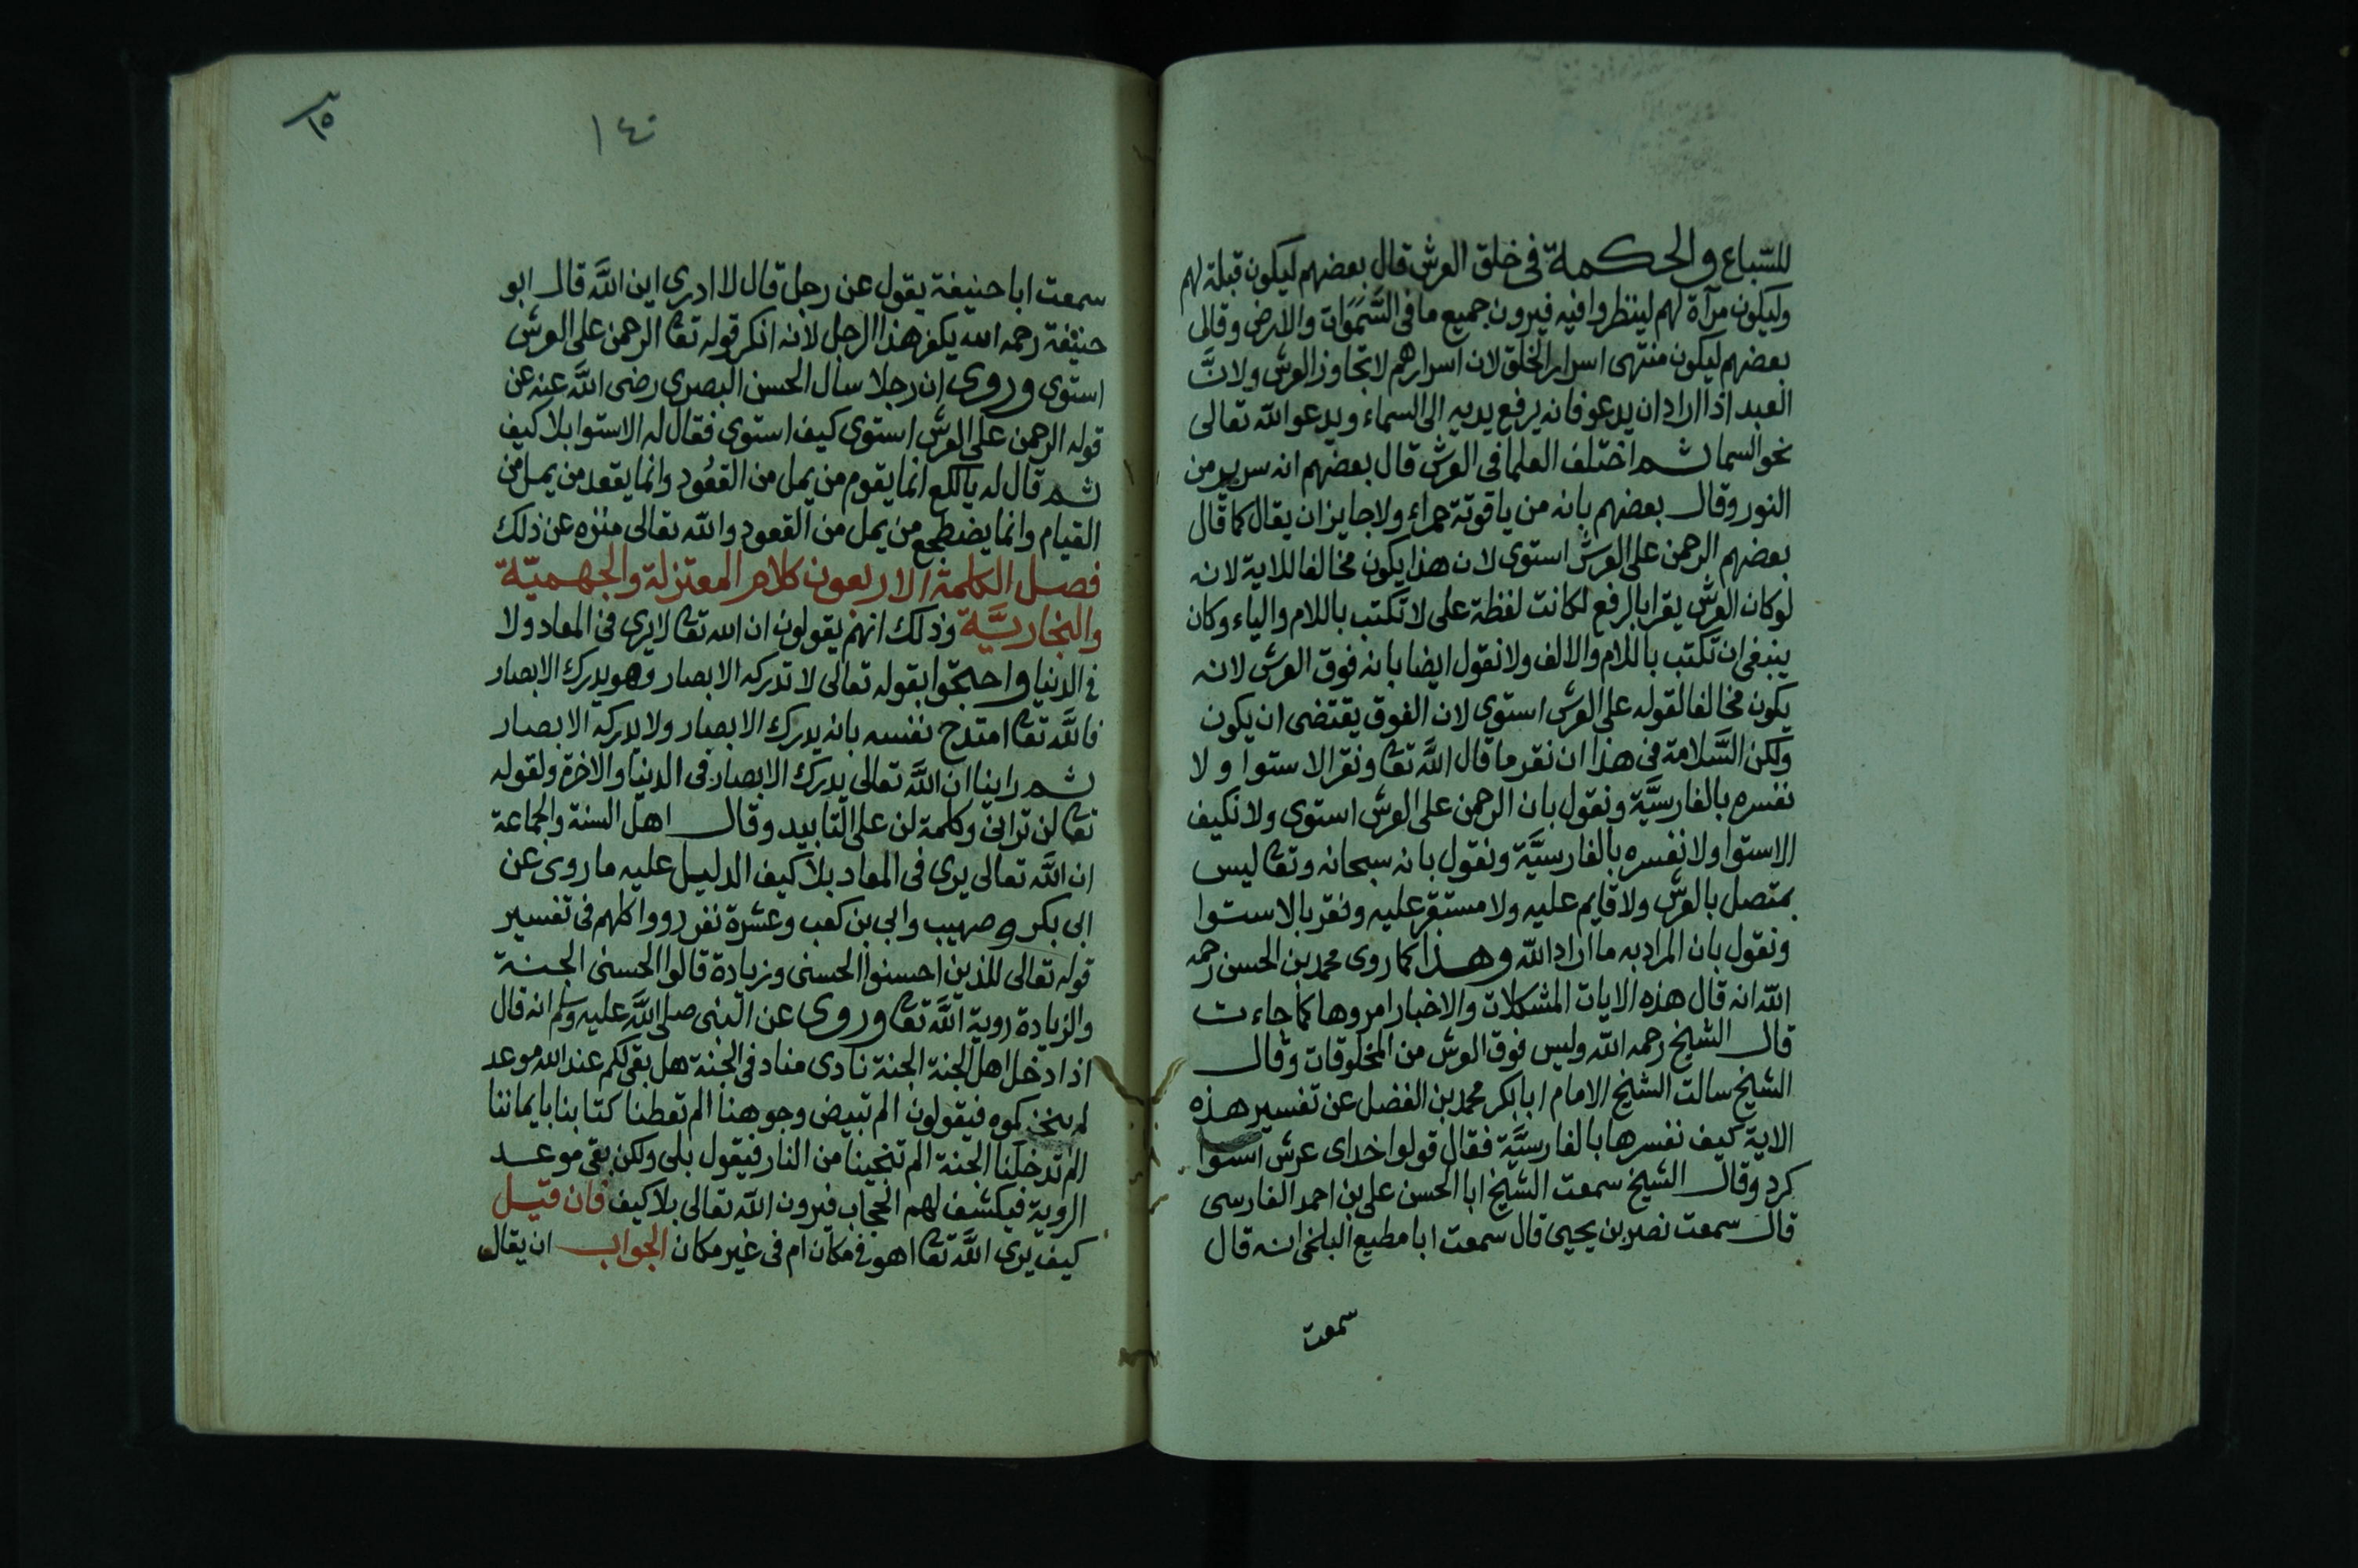 للسباع والحكمة في خلق العرش قال بعضهم ليكون قبلة لهم
وليكون مرآة لهم لينظروا فيه فيرون جميع ما في السَّمَوَات والارض وقال
بعضهم ليكون منتهى اسرار الخلق لان اسرارهم لا تجاوز العرش ولانَّ
العبد اذا اراد ان يدعو فانه يرفع يديه الى السماء ويدعو الله تعالى
نحو السما ثم اختلف العلما في العرش قال بعضهم انه سرير من
النور وقال بعضهم بانه من ياقوتة حمراء ولا جايز ان يقال كما قال
بعضهم الرحمن على العرش استوى لان هذا يكون مخالفا للاية لانه
لو كان العرش يقرا بالرفع لكانت لفظة على لا تكتب باللام والياء وكان
ينبغي ان تكتب باللام والالف ولا نقول ايضا بانه فوق العرش لانه
يكون مخالفا لقوله على العرش استوى لان الفوق يقتضى ان يكون
ولكن السَّلامة في هذا ان نقر ما قال اللَّه تعا ونقر الاستوا ولا
نفسره بالفارسيَّة ونقول بان الرحمن على العرش استوى ولا نكيف
الاستوا ولا نفسره بالفارسيَّة ونقول بانه سبحانه وتعا ليس
بمتصل بالعرش ولا قايم عليه ولا مستقر عليه ونقر بالاستوا
ونقول بان المراد به ما اراد الله وهذا كما روى محمد بن الحسن رحمه
الله انه قال هذه الايات المشكلات والاخبار امروها كما جاءت
قال الشيخ رحمه الله وليس فوق العرش من المخلوقات وقال
الشيخ سالت الشيخ الامام ابا بكر محمد بن الفضل عن تفسير هذه
الاية كيف نفسرها بالفارسيَّة فقال قولوا خداى عرش استوا
كرد وقال الشيخ سمعت الشيخ ابا الحسن على بن احمد الفارسى
قال سمعت نصر بن يحيى قال سمعت ابا مطيع البلخى انه قال
سمعت
١٤٠
سمعت ابا حنيفة يقول عن رجل قال لا ادرى اين اللَّه قال ابو
حنيفة رحمه الله يكفر هذا الرجل لانه انكر قوله تعا الرحمن على العرش
استوى وروى ان رجلا سال الحسن البصرى رضى اللَّه عنه عن
قوله الرحمن على العرش استوى كيف استوى فقال له الاستوا بلا كيف
ثم قال له يا لكع انما يقوم من يمل من القعُود وانما يقعد من يمل من
القيام وانما يضطجع من يمل من القعود والله تعالى منزه عن ذلك
فصل الكلمة الاربعون كلام المعتزلة والجهميّة
والنجاريَّة وذلك انهم يقولون ان الله تعا لا يرى في المعاد ولا
في الدنيا واحتجّوا بقوله تعالى لا تدركه الابصار وهو يدرك الابصار
فاللَّه تعا امتدح نفسه بانه يدرك الابصار ولا يدركه الابصار
ثم راينا ان اللَّه تعالى يدرك الابصار في الدنيا والاخرة ولقوله
تعا لن ترانى وكلمة لن على التابيد وقال اهل السنة والجماعة
ان اللَّه تعالى يرى في المعاد بلا كيف الدليل عليه ما روى عن
ابى بكر وصهيب وابى بن كعب وعشرة نفر رووا كلهم في تفسير
قوله تعالى للذين احسنوا الحسنى وزيادة قالوا الحسنى الجنة
والزيادة روية اللَّه تعا وروى عن النبى صلى اللَّه عليه وسلم انه قال
اذا دخل اهل الجنة الجنة نادى مناد في الجنة هل بقى لكم عند الله موعد
فيقولون الم تبيض وجوهنا الم تعطنا كتابنا بايماننا
الم تدخلنا الجنة الم تنجينا من النار فيقول بلى ولكن بقى موعد
الروية فيكشف لهم الحجاب فيرون الله تعالى بلا كيف فان قيل
كيف يرى اللَّه تعا اهو في مكان ام في غير مكان الجواب ان يقال